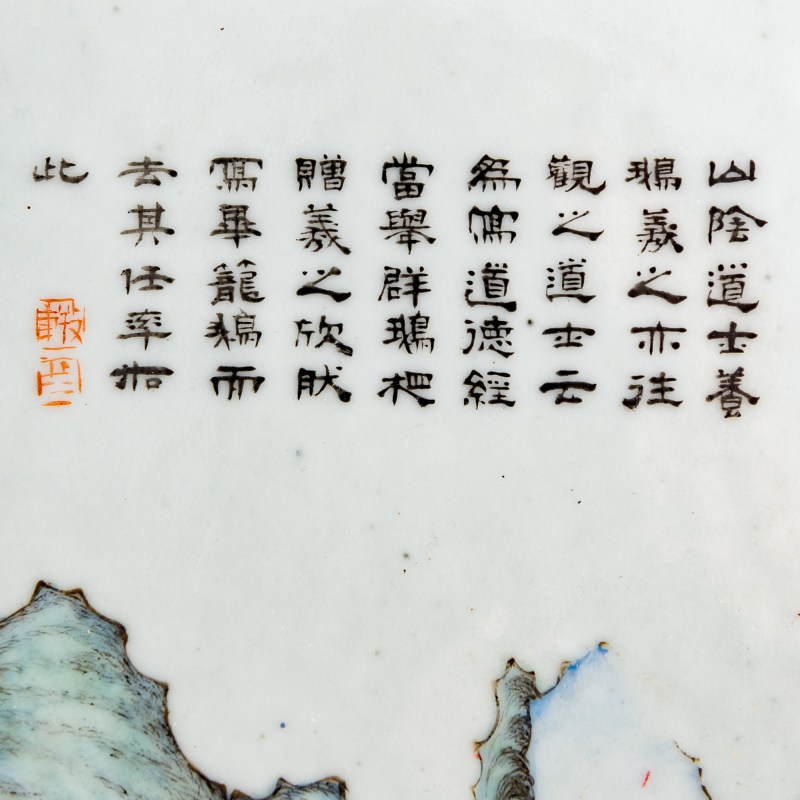 山陰道士養
鵝羲之亦往
觀之道士云
為寫道德經
當舉群鵝相
贈羲之欣然
寫畢籠鵝而
去其任率如
此